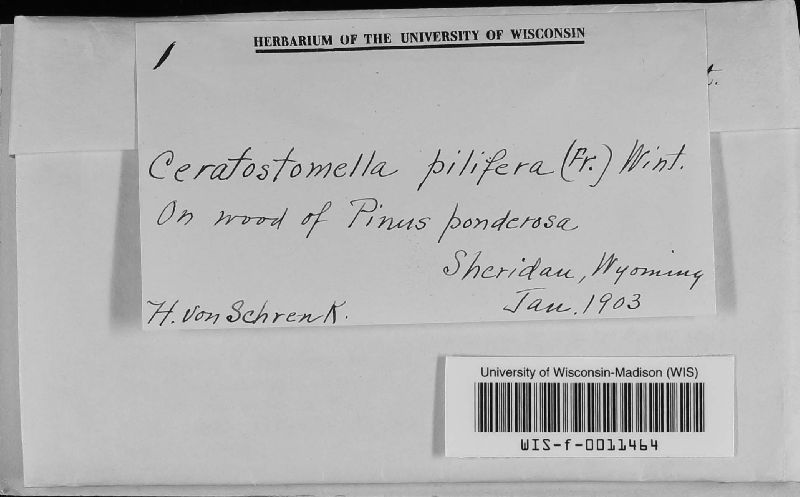 HERBARIUM OF THE UNIVERSITY OF WISCONSIN
Ceratostomella pilifera (Fr.) Wint.
On wood of Pinus ponderosa
Sheridan, Wyoming
Jan. 1903
H. von Schrenk.
University of Wisconsin-Madison (WIS)
WIS-f-0011464